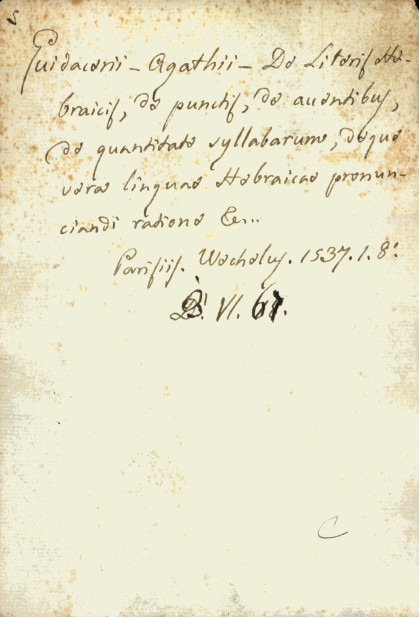 5
Guidacerii - Agathii - De Literis He-
braicis, de punctis, de accentibus,
de quantitate syllabarum, deque
vera linguae Hebraicae pronun-
ciandi ratione &...
Parisiis. Wechelus. 1537. 1. 8:
VI. 61.
C